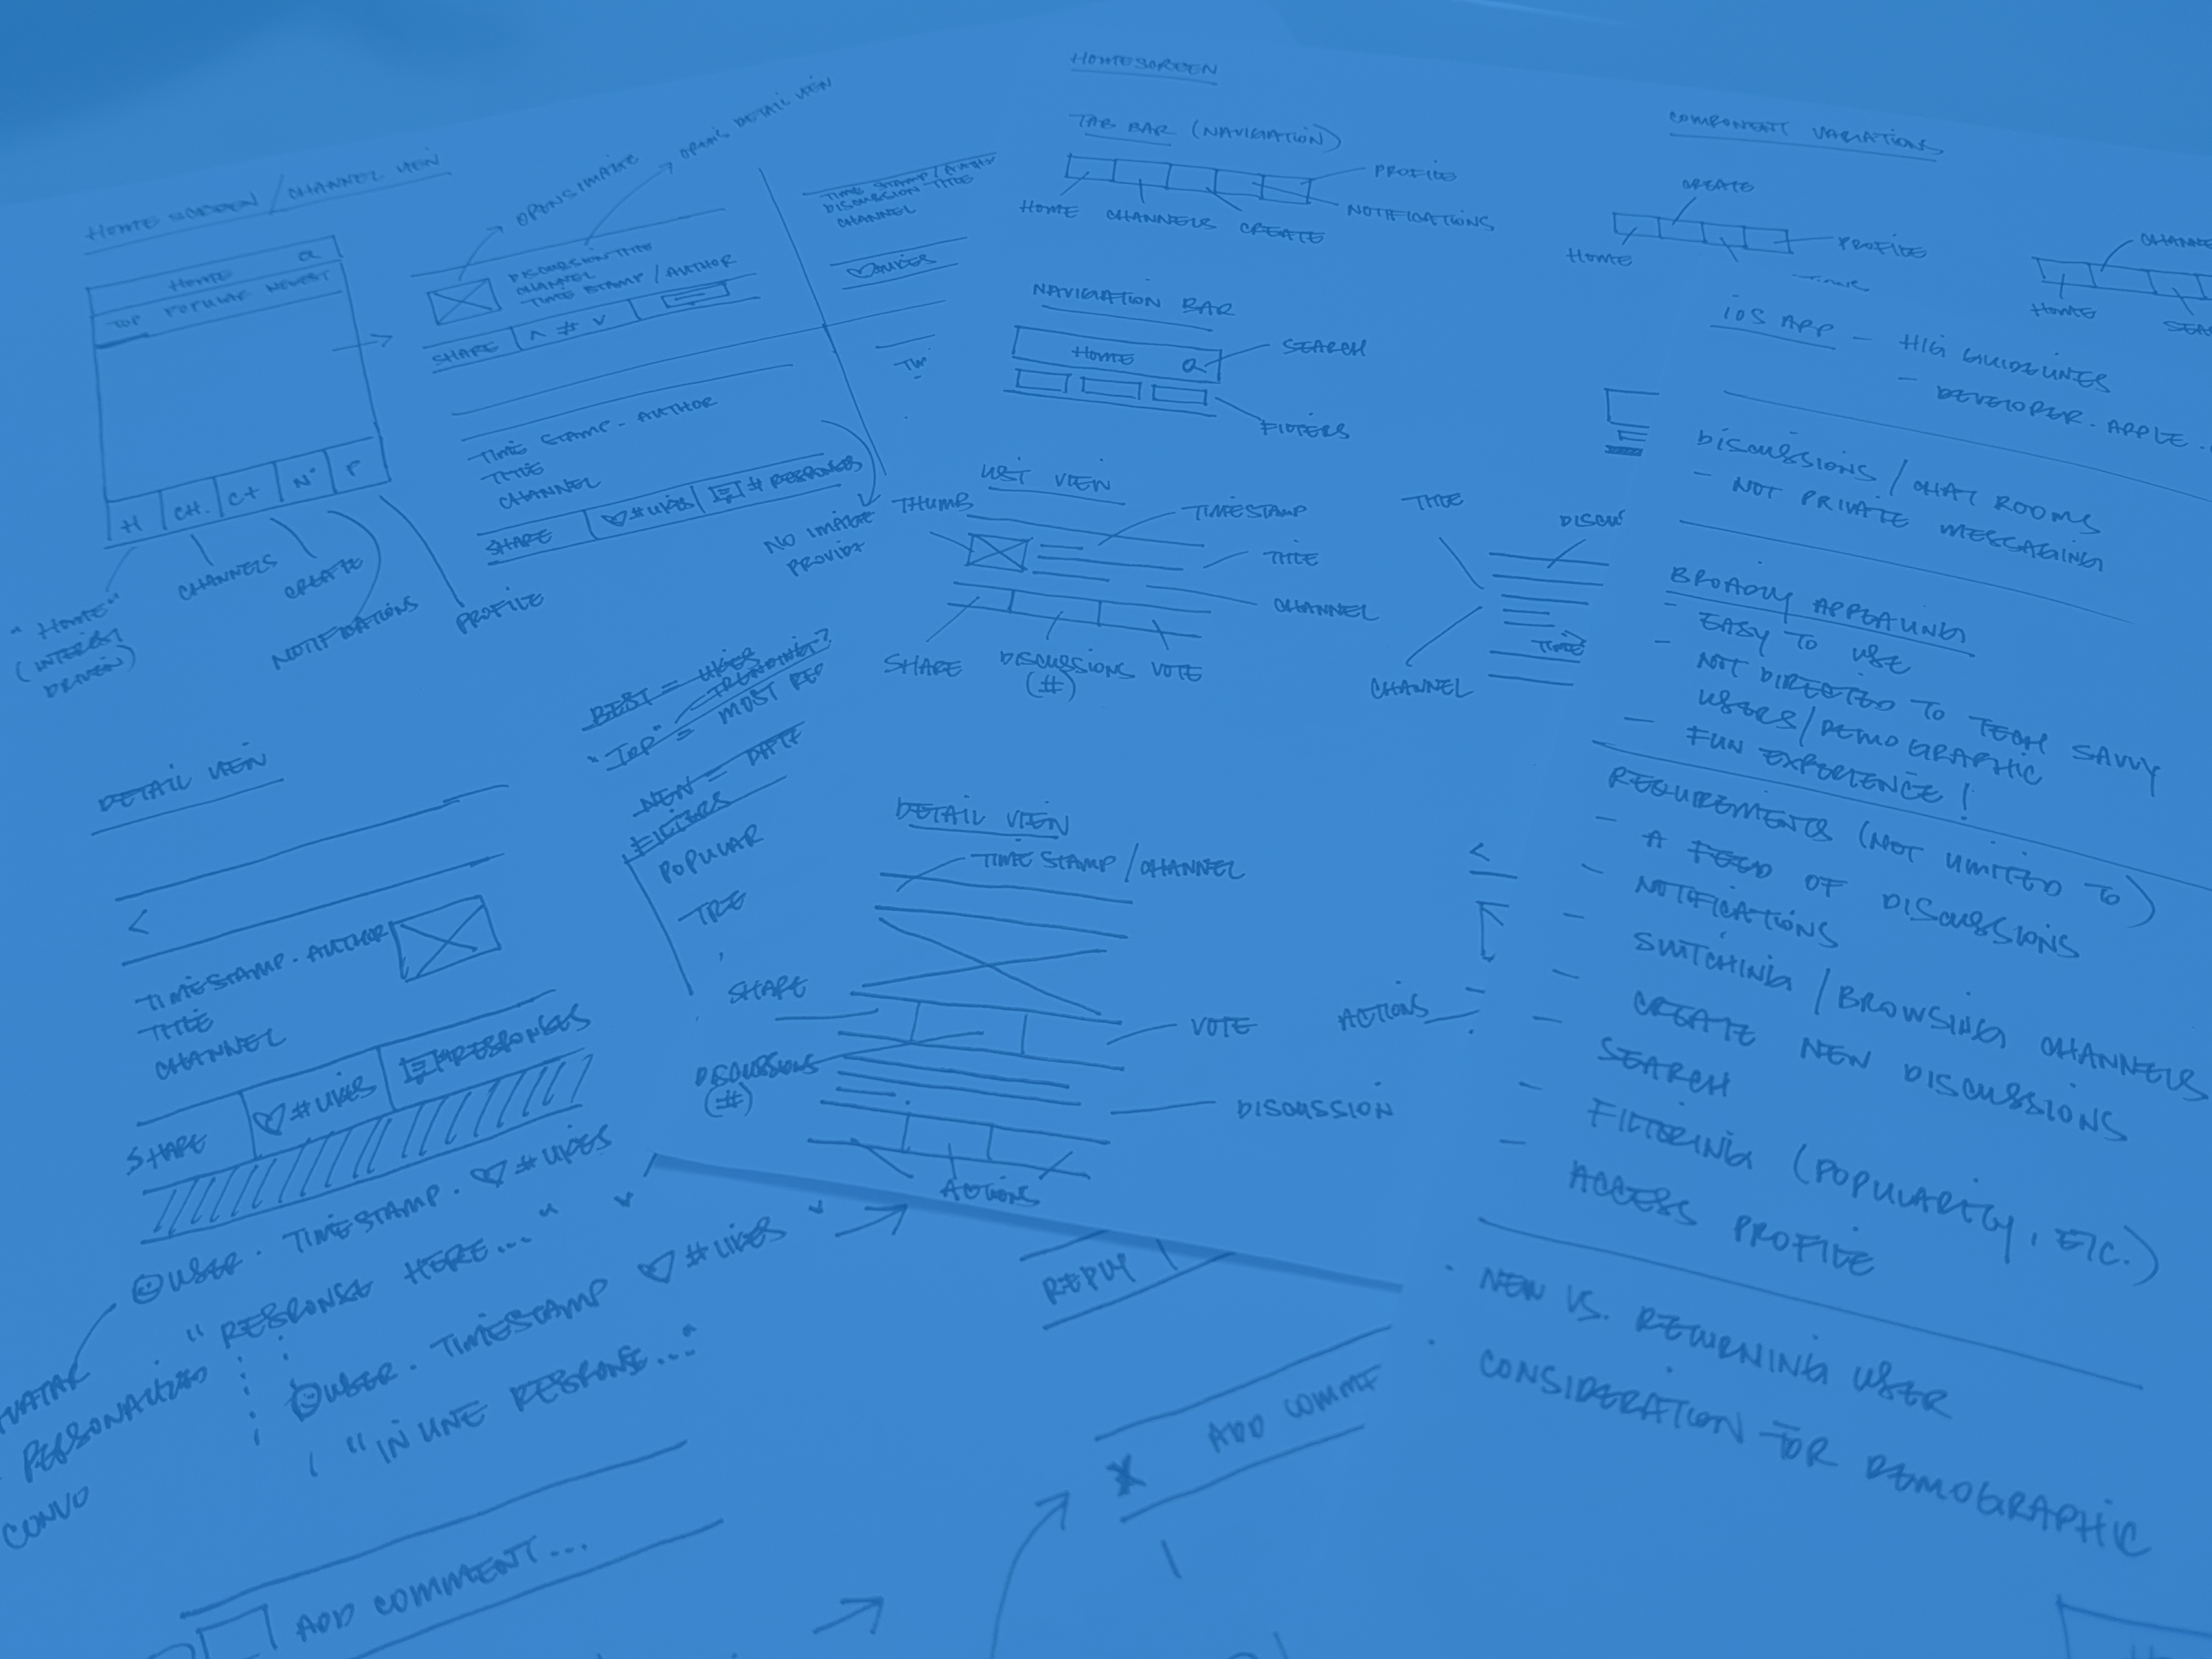 HOME SCREEN / CHANNEL VIEW
HOME
TOP POPULAR NEWEST
H CH. C+ N P
"HOME"
(INTEREST
DRIVEN)
CHANNELS
CREATE
NOTIFICATIONS
PROFILE
OPENS IMAGE
OPENS DETAIL VIEW
DISCUSSION TITLE
CHANNEL
TIME STAMP / AUTHOR
SHARE ^ # v
TIME STAMP - AUTHOR
TITLE
CHANNEL
SHARE # LIKES # RESPONSES
NO IMAGE
TIME STAMP / AUTHOR
DISCUSSION TITLE
CHANNEL
LIKES
DETAIL VIEW
<
TIMESTAMP. AUTHOR
TITLE
CHANNEL
SHARE # LIKES # RESPONSES
USER. TIMESTAMP. # LIKES
"RESPONSE HERE..."
USER. TIMESTAMP # LIKES
"IN LINE RESPONSE..."
AVATAR
PERSONALIZES
CONVO
ADD COMMENT...
BEST = LIKES
"TOP" = MOST
NEW = DATE
FILTERS
POPULAR
HOMESCREEN
TAB BAR (NAVIGATION)
PROFILE
NOTIFICATIONS
HOME CHANNELS CREATE
NAVIGATION BAR
HOME
SEARCH
FILTERS
LIST VIEW
THUMB
TIMESTAMP
TITLE
CHANNEL
SHARE DISCUSSIONS VOTE
(#)
DETAIL VIEW
TIME STAMP / CHANNEL
SHARE
VOTE
DISCUSSIONS
(#)
DISCUSSION
ACTIONS
REPLY
ADD COMME
TITLE
CHANNEL
ACTIONS
COMPONENT VARIATIONS
CREATE
HOME
PROFILE
HOME
iOS APP - HIG GUIDELINES
- DEVELOPER.APPLE.
DISCUSSIONS / CHAT ROOMS
- NOT PRIVATE MESSAGING
BROADLY APPEALING
- EASY TO USE
- NOT DIRECTED TO TECH SAVVY
USERS/DEMOGRAPHIC
- FUN EXPERIENCE!
REQUIREMENTS (NOT LIMITED TO)
- A FEED OF DISCUSSIONS
- NOTIFICATIONS
- SWITCHING / BROWSING CHANNELS
- CREATE NEW DISCUSSIONS
- SEARCH
- FILTERING (POPULARITY, ETC.)
- ACCESS PROFILE
· NEW VS. RETURNING USER
· CONSIDERATION FOR DEMOGRAPHIC